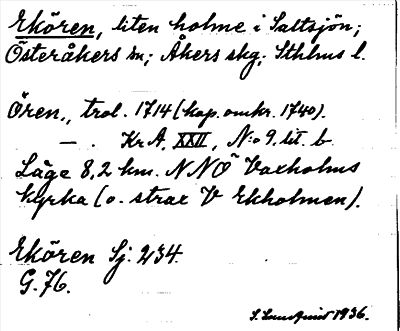 Ekören, liten holme i Saltsjön;
Österåkers sn; Åkers skg; Sthlms l.
Ören,, trol. 1714 (kop. omkr. 1740).
— . Kr A, XXII, N:o 9, lit. b.
Läge 8,2 km. NNÖ Vaxholms
kyrka (o. strax V Ekholmen).
Ekören Sj. 234.
G. 76.
S. Lundquist 1936.